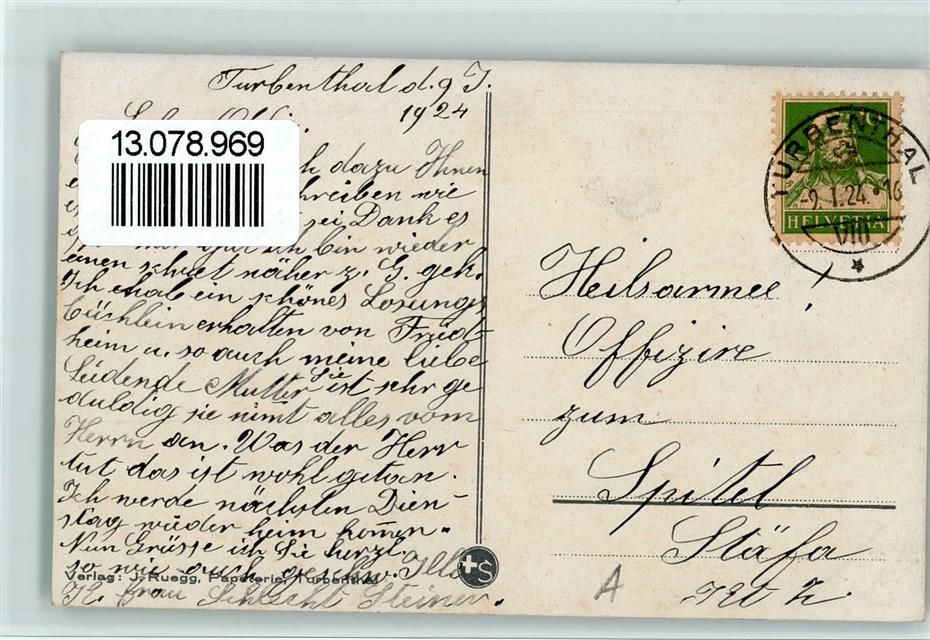 Turbenthal d. 9 I.
1924
13.078.969
dazu Ihnen
schreiben wie
sei Dank es
ich bin wieder
einen schret näher z. G. gek.
Ich ehab ein schönes Losungs
büchlein erhalten von Fried
heim u. so auch meine liebe
Leidende Mutter Sie ist sehr ge
duldig sie nimt alles vom
Herrn an. Was der Herr
tut das ist wohl getan.
Ich werde nächsten Dien-
stag wieder heim kommen.
Nun Grüsse ich Sie herzl.
so wie auch geschw.
Verlag: J. Ruegg, Papeterie, Turbenthal
Fr. Frau Schlecht Steiner.
+S
TURBENTHAL
-9. I. 24. -16
VIII
HELVETIA
Heilsarmee!
Offizire
zum
Spitel
Stäfa
Kt Z.
A